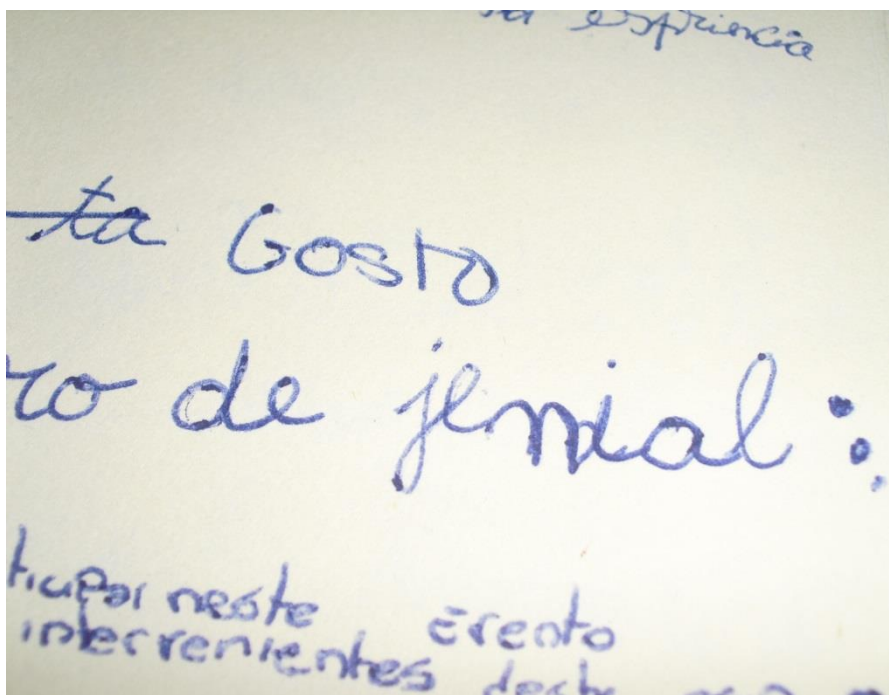 esperiencia
ta Gosto
ro de jenial :.
ticipar neste Evento
intervenientes deste